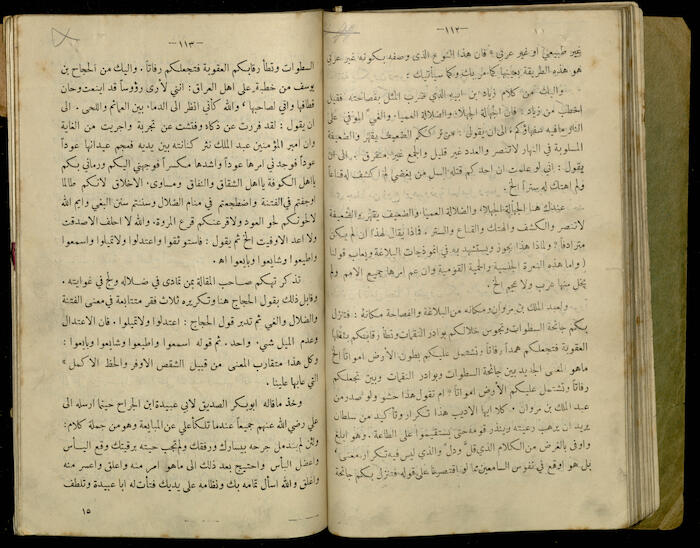 — ١١٢ —
غير طبيعي او غير عربي» فان هذا النوع الذي وصفه بكونه غير عربي
هو هذه الطريقة بعينها كما مر بك وكما سيأتيك :
واليك من كلام زياد ابن ابيه الذي ضرب المثل بفصاحته فقيل
اخطب من زياد : فان الجهالة الجهلاء والضلالة العمياء والغي الموفي على
النار ما فيه سفهاؤكم، الى ان يقول: من ترككم الضعيف يقهر والضعيفة
المسلوبة في النهار لا تنصر والعدد غير قليل والجمع غير متفرق . الى ان
يقول : اني لو علمت ان احدكم قتله السل من بغضي لم اكشف له قناعاً
ولم اهتك له ستراً الخ.
عندك هنا الجهالة الجهلاء والضلالة العمياء والضعيف يقهر والضعيفة
لا تنصر والكشف والهتك والقناع والستر . فماذا يقال لهذا ان لم يكن
مترادفاً ؟ ولماذا هذا يجوز ويستشهد به في انموذجات البلاغة ويعاب قولنا
( واما هذه النعرة الجنسية والحمية القومية وان عم امرها جميع الامم ولم
يخل منها عرب ولا عجم الخ.
ولعبد الملك بن مروان ومكانه من البلاغة والفصاحة مكانه : فتنزل
بكم جائحة السطوات وتجوس خلالكم بوادر النقمات وتطأ رقابكم بثقلها
العقوبة فتجعلكم همداً رفاتاً وتشتمل عليكم بطون الارض امواتاً الخ
ماهو المعنى الجديد بين جائحة السطوات وبوادر النقمات وبين تجعلكم
رفاتاً وتشتمل عليكم الأرض امواتاً ؟ ام تقول هذا حشو ولو صدر من
عبد الملك بن مروان . كلا ايها الاديب هذا تكرار وتأكيد من سلطان
يريد ان يرهب رعيته وينذر قومه حتى يستقيموا على الطاعة . وهو ابلغ
واوفى بالغرض من الكلام الذي قلَّ ودل» والذي ليس فيه تكرار معنى
بل هو اوقع في نفوس السامعين مما لو اقتصر على قوله فتنزل بكم جائحة
— ١١٣ —
السطوات وتطأ رقابكم العقوبة فتجعلكم رفاتاً . واليك من الحجاج بن
يوسف من خطبة على اهل العراق : انني لأرى رؤوساً قد اينعت وحان
قطافها واني لصاحبها ، والله كأني انظر الى الدماء بين العمائم واللحى . الى
ان يقول : لقد فررت عن ذكاء وفتشت عن تجربة واجريت من الغاية
وان امير المؤمنين عبد الملك نثر كنانته بين يديه فعجم عيدانها عوداً
عوداً فوجدني امرها عوداً واشدها مكسراً فوجهني اليكم ورماني بكم
يا اهل الكوفة يا اهل الشقاق والنفاق ومساوىء الاخلاق لانكم طالما
اوضعتم في الفتنة واضطجعتم في منام الضلال وسننتم سنن البغي وايم الله
لالحونكم لحو العود ولاقرعنكم قرع المروة. والله لا احلف الا صدقت
ولا اعد الا وفيت الخ ثم يقول : فاستوثقوا واعتدلوا ولا تميلوا واسمعوا
واطيعوا وشايعوا وبايعوا اه.
تذكر تهكم صاحب المقالة بمن تمادى في ضلاله ولج في غوايته .
وقابل ذلك بقول الحجاج هنا وتكريره ثلاث فقر متتابعة في معنى الفتنة
والضلال والغي ثم تدبر قول الحجاج : اعتدلوا ولا تميلوا . فان الاعتدال
وعدم الميل شيء واحد . ثم قوله اسمعوا واطيعوا وشايعوا وبايعوا :
وكل هذا متقارب المعنى من قبيل الشقص الاوفر والحظ الاكمل »
التي عابها علينا .
وخذ ما قاله ابو بكر الصديق لابي عبيدة ابن الجراح حينما ارسله الى
علي رضي الله عنهم جميعاً عندما تلكأ علي عن المبايعة وهو من جملة كلام:
ولئن لم يندمل جرحه بيسارك ورفقك ولم تجب حيته برقيتك وقع اليأس
واعضل البأس واحتيج بعد ذلك الى ماهو امر منه واعلق واعسر منه
واغلق والله اسأل تمامه بك ونظامه على يديك فتأت له ابا عبيدة وتلطف
١٥